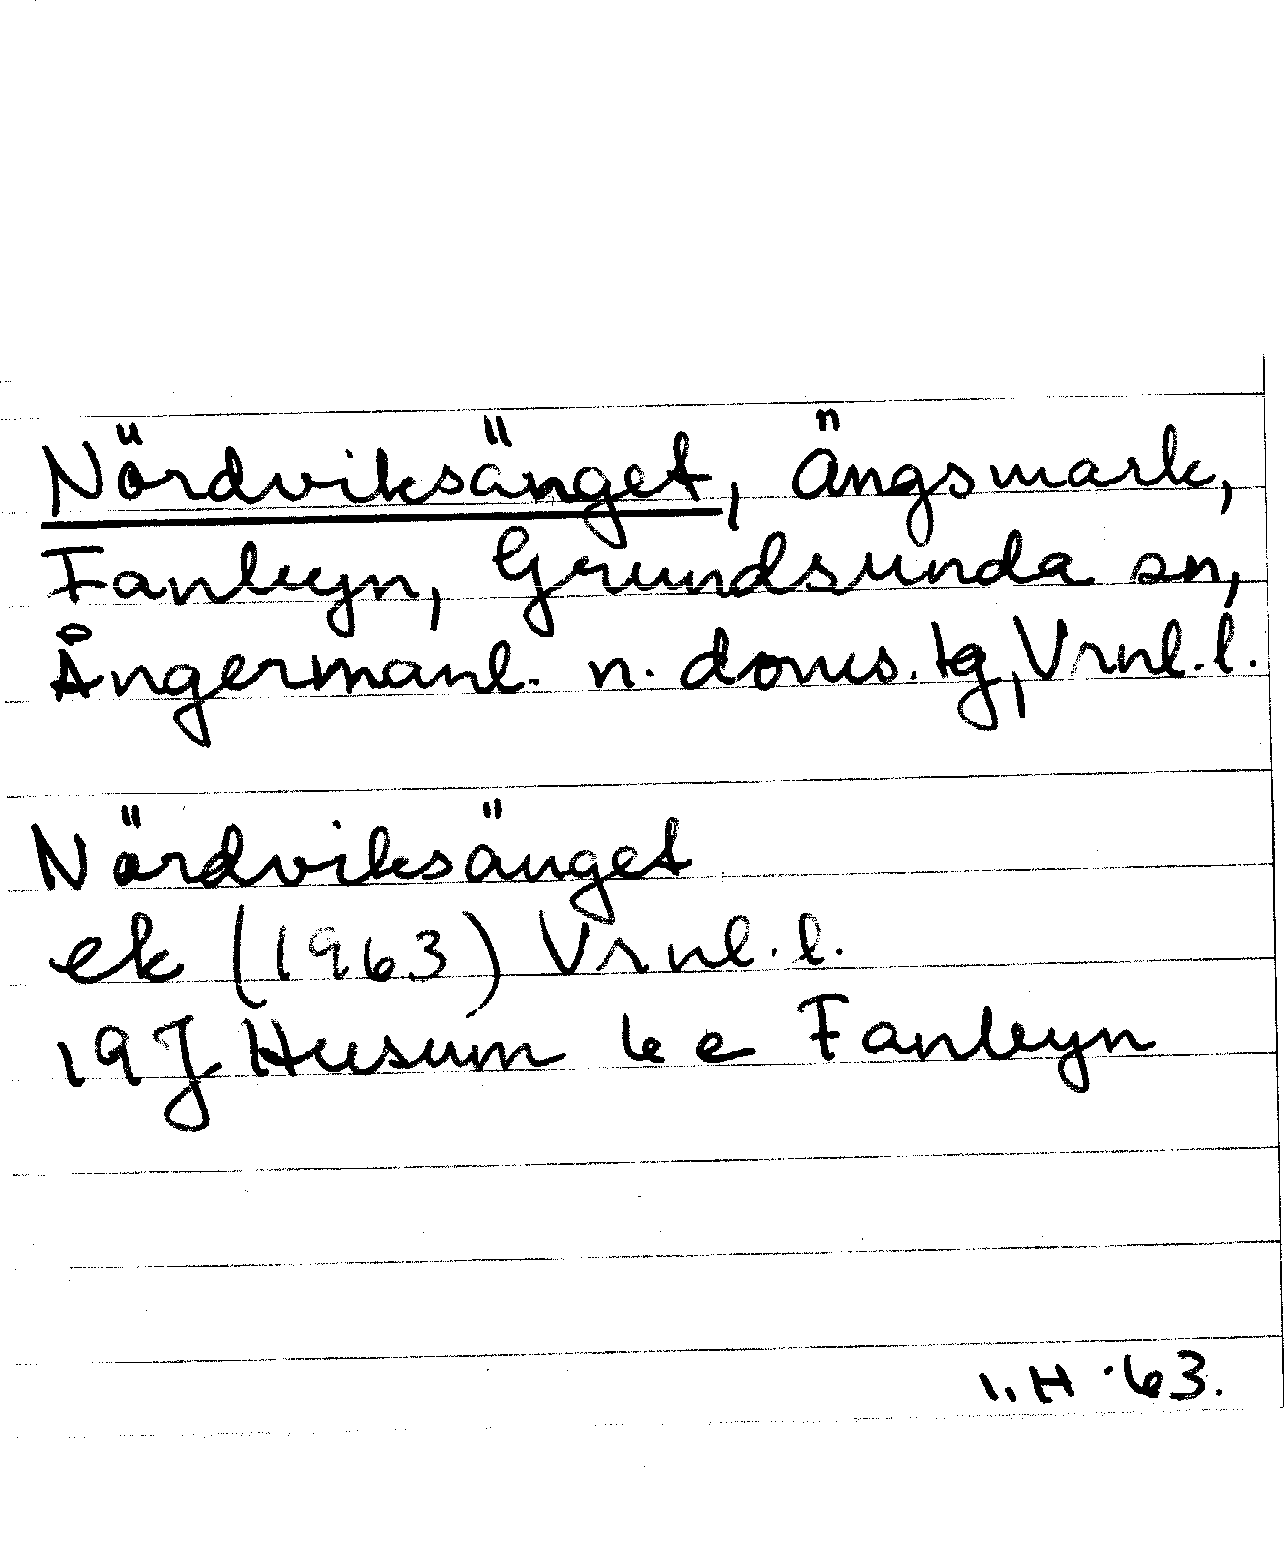 Nördviksänget, ängsmark,
Fanbyn, Grundsunda sn,
Ångermanl. n. doms. tg, Vrnl. l.
Nördviksänget
ek (1963) Vrnl. l.
19J Husum 6 e Fanbyn
I. H. 63.